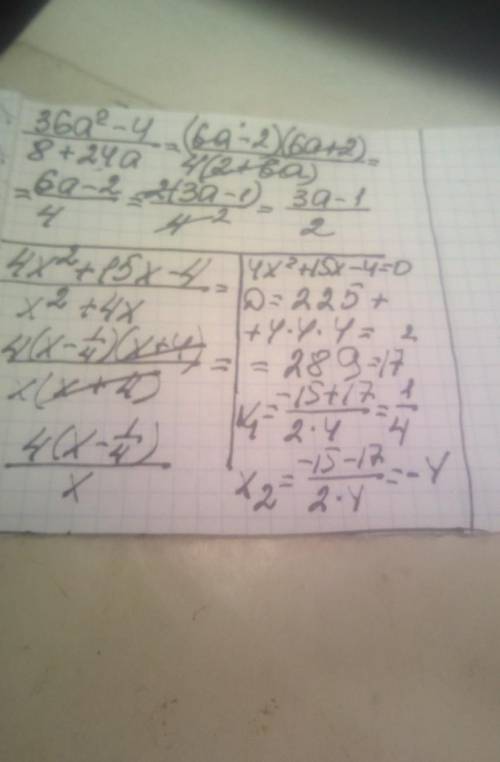 (36a² - 4)/(8 + 24a) = ((6a - 2)(6a + 2))/(4(2 + 6a)) =
= (6a - 2)/4 = (2(3a - 1))/(4 2) = (3a - 1)/2
(4x² + 15x - 4)/(x² + 4x) =
(4(x - 1/4)(x + 4))/(x(x + 4)) =
(4(x - 1/4))/x
4x² + 15x - 4 = 0
D = 225 +
+ 4·4·4 =
= 289 = 17²
x₁ = (-15 + 17)/(2·4) = 1/4
x₂ = (-15 - 17)/(2·4) = -4